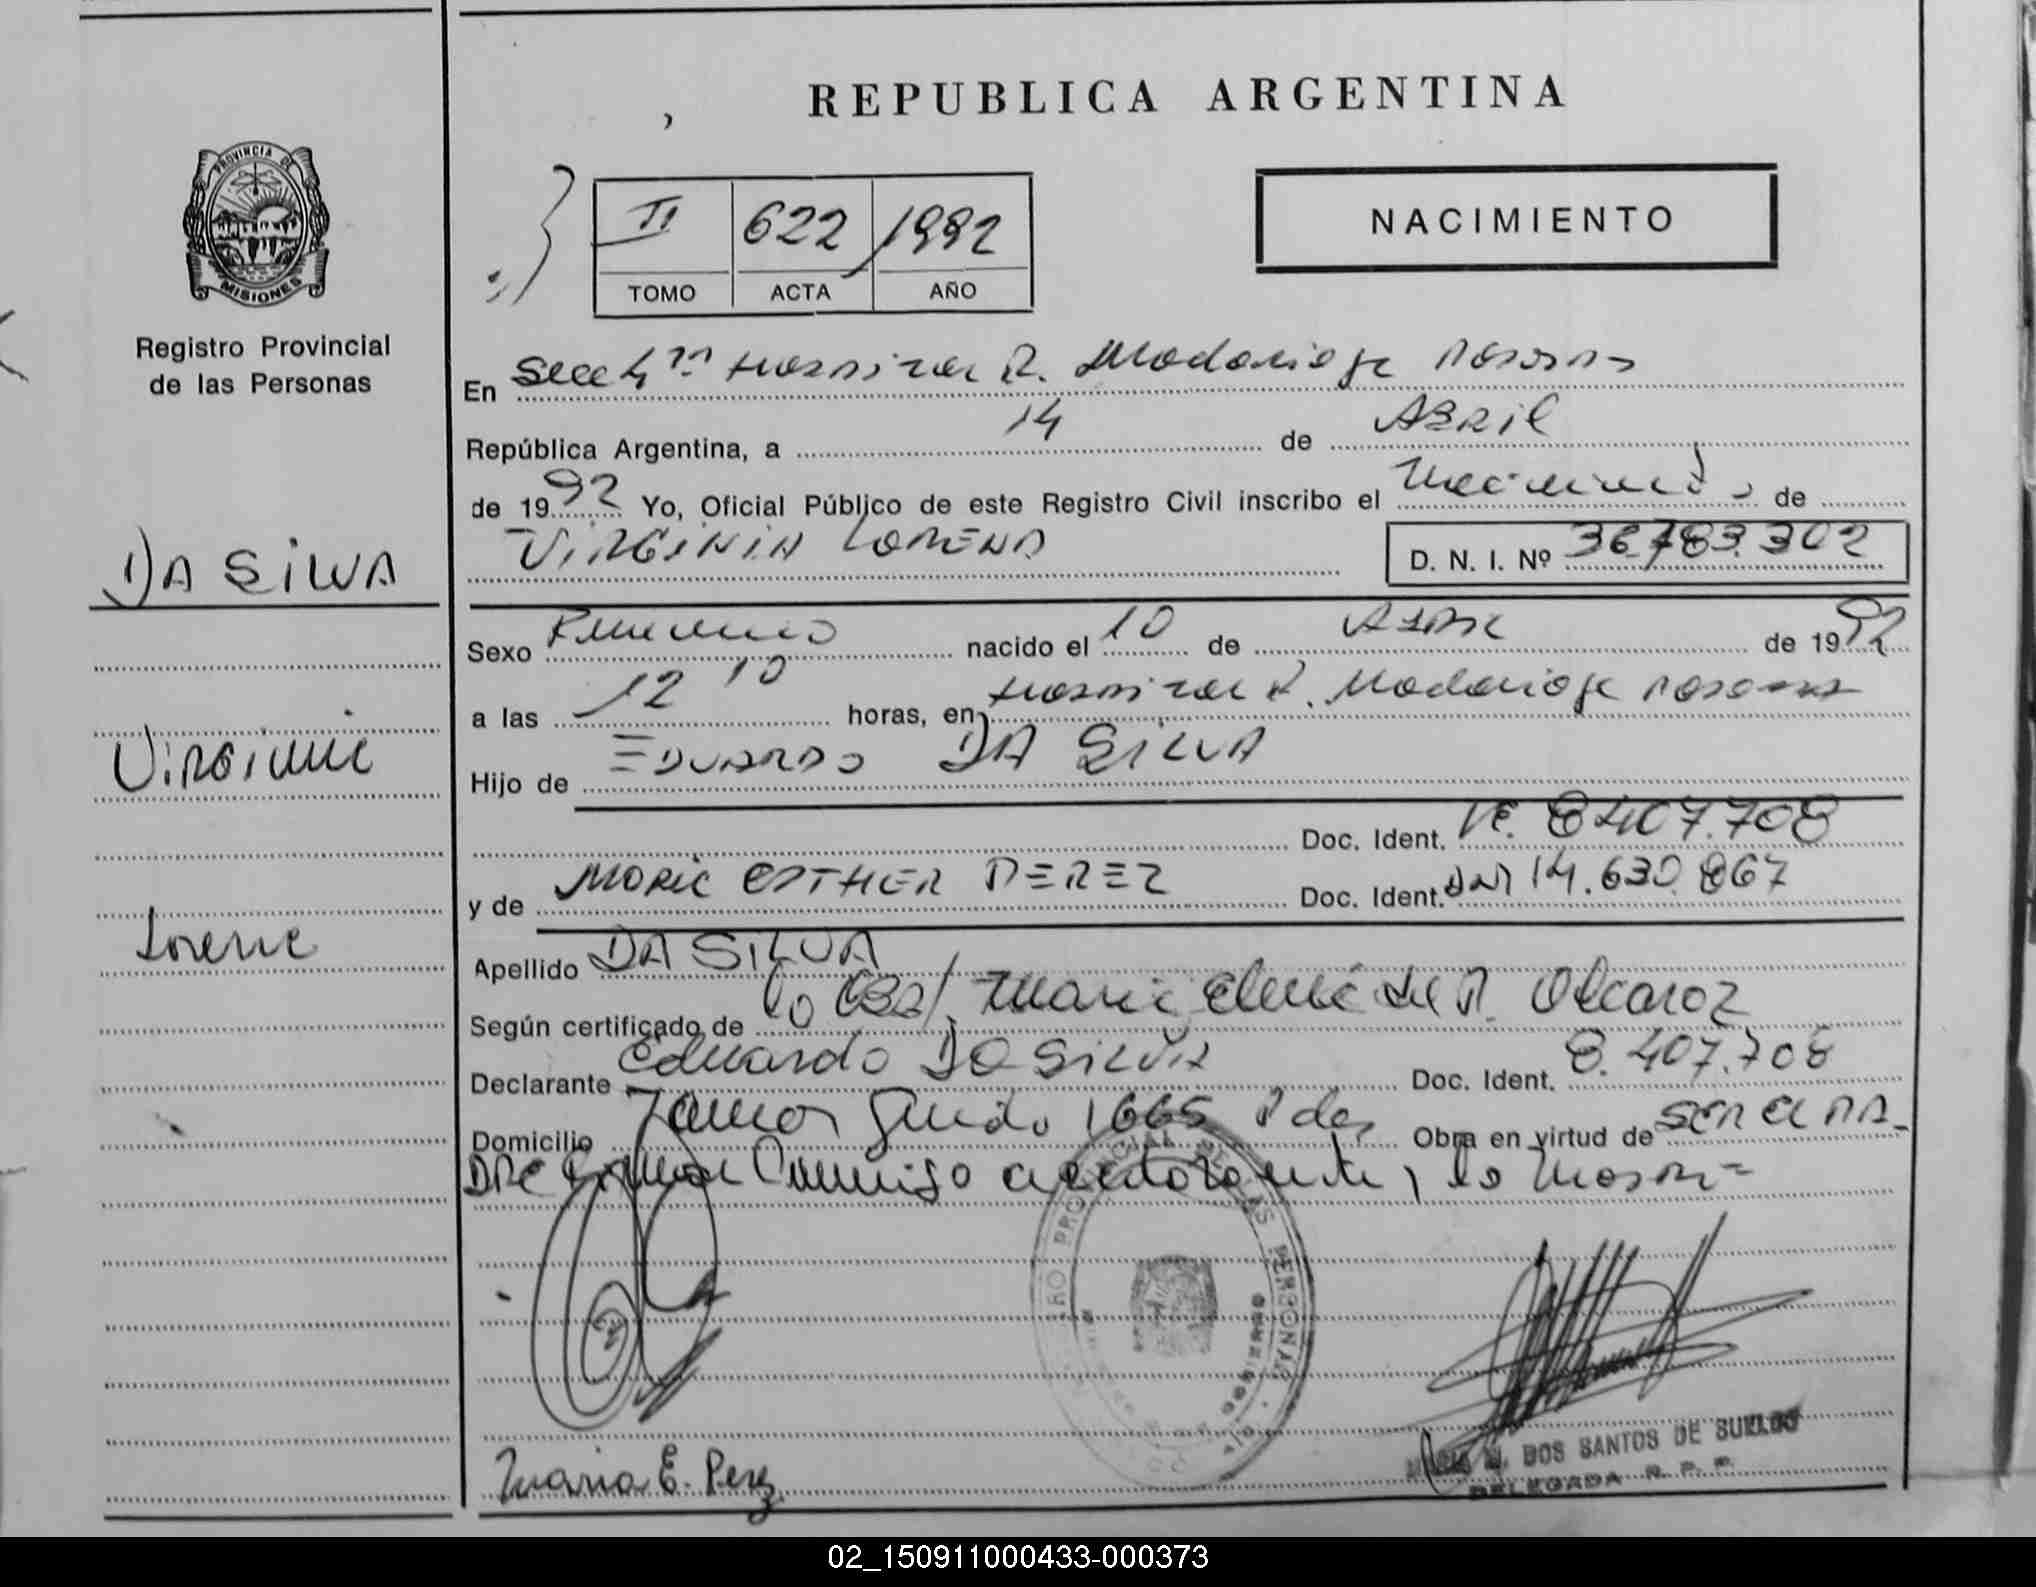 REPUBLICA ARGENTINA
PROVINCIA DE
MISIONES
Registro Provincial
de las Personas
II 622 1992
TOMO ACTA AÑO
NACIMIENTO
En Secc 4ta Hospital R. Madariaga Posadas
República Argentina, a 14 de ABRIL
de 1992 Yo, Oficial Público de este Registro Civil inscribo el Nacimiento de
VIRGINIA LORENA
D. N. I. Nº 36.783.302
DA SILVA
Virginia
Lorena
Sexo Femenino nacido el 10 de ABRIL de 1992
a las 12 10 horas, en Hospital R. Madariaga Posadas
Hijo de EDUARDO DA SILVA
Doc. Ident. LE. 8407.708
y de MARIA ESTHER PEREZ Doc. Ident. DNI 14.630.867
Apellido DA SILVA
Según certificado de la Obst. Maria Elena de R. Alcaraz
Declarante Eduardo DA SILVA Doc. Ident. 8.407.708
Domicilio 1665 Pdas Obra en virtud de SER EL PA-
DRE la
REGISTRO PROVINCIAL DE LAS PERSONAS
Maria E. Perez
DOS SANTOS DE SUELDO
DELEGADA R. P. P.
02_150911000433-000373